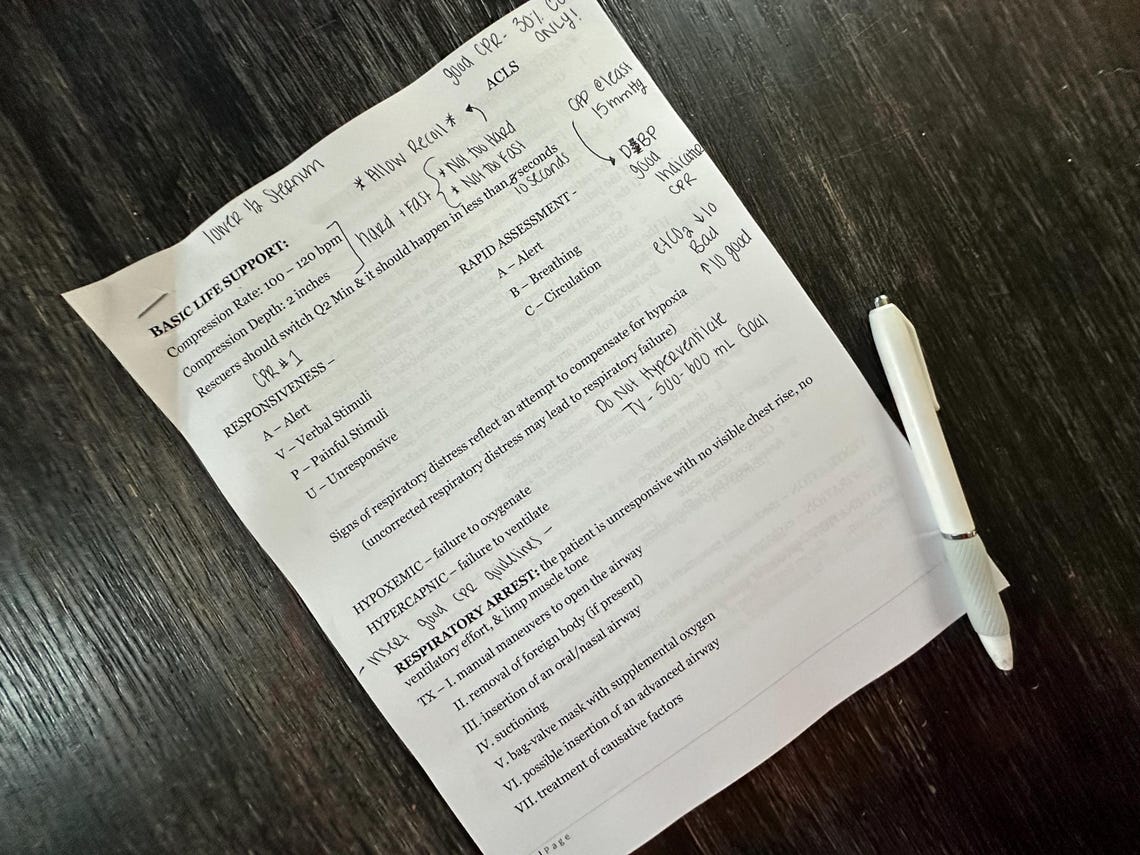 good CPR - 30% CO
ONLY!
ACLS
lower 1/2 Sternum
* Allow Recoil *
hard + Fast
* Not too Hard
* Not too Fast
10 seconds
CPP @ least
15 mmHg
DBP
good
Indicator
CPR
etCO2 ↓10
Bad
↑10 good
BASIC LIFE SUPPORT:
Compression Rate: 100 – 120 bpm
Compression Depth: 2 inches
Rescuers should switch Q2 Min & it should happen in less than 5 seconds
CPR #1
RESPONSIVENESS –
A – Alert
V – Verbal Stimuli
P – Painful Stimuli
U – Unresponsive
RAPID ASSESSMENT -
A – Alert
B – Breathing
C – Circulation
Signs of respiratory distress reflect an attempt to compensate for hypoxia
(uncorrected respiratory distress may lead to respiratory failure)
Do Not Hyperventilate
TV - 500-600 mL Goal
HYPOXEMIC – failure to oxygenate
HYPERCAPNIC – failure to ventilate
- Insert good CPR guidelines -
RESPIRATORY ARREST: the patient is unresponsive with no visible chest rise, no
ventilatory effort, & limp muscle tone
TX – I. manual maneuvers to open the airway
II. removal of foreign body (if present)
III. insertion of an oral/nasal airway
IV. suctioning
V. bag-valve mask with supplemental oxygen
VI. possible insertion of an advanced airway
VII. treatment of causative factors
| Page